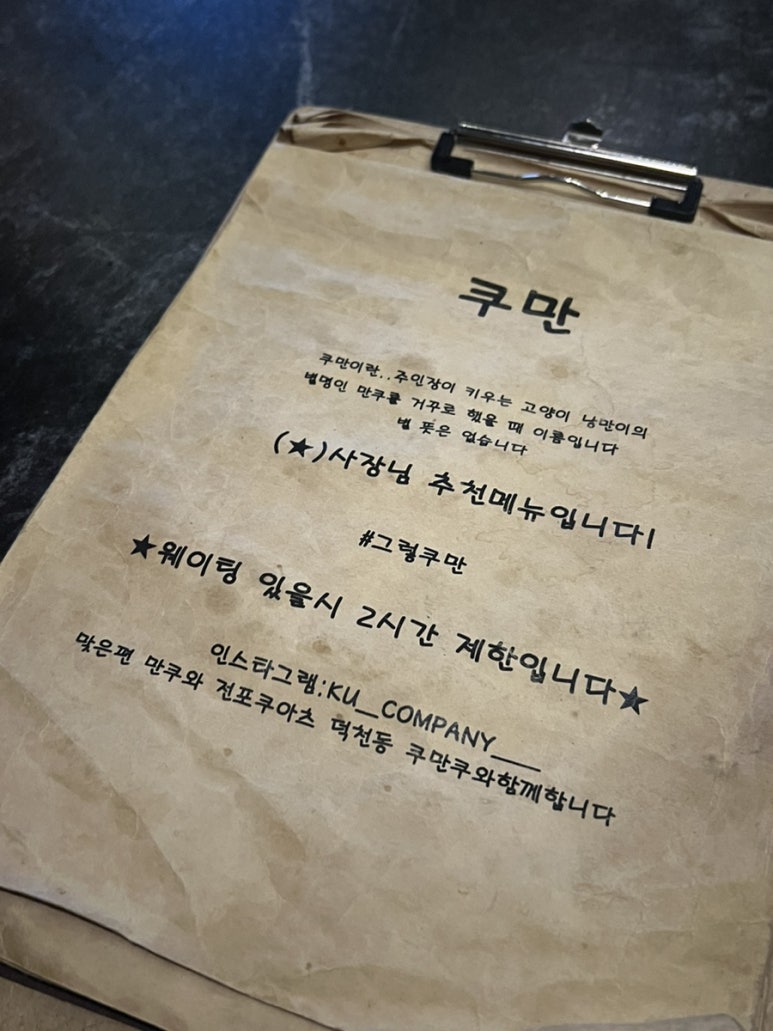 쿠만
쿠만이란..주인장이 키우는 고양이 낭만이의
별명인 만쿠를 거꾸로 했을 때 이름입니다
별 뜻은 없습니다
(★)사장님 추천메뉴입니다!
#그렇쿠만
★웨이팅 있을시 2시간 제한입니다★
인스타그램:KU__COMPANY___
맞은편 만쿠와 전포쿠아츠 덕천동 쿠만쿠와함께합니다